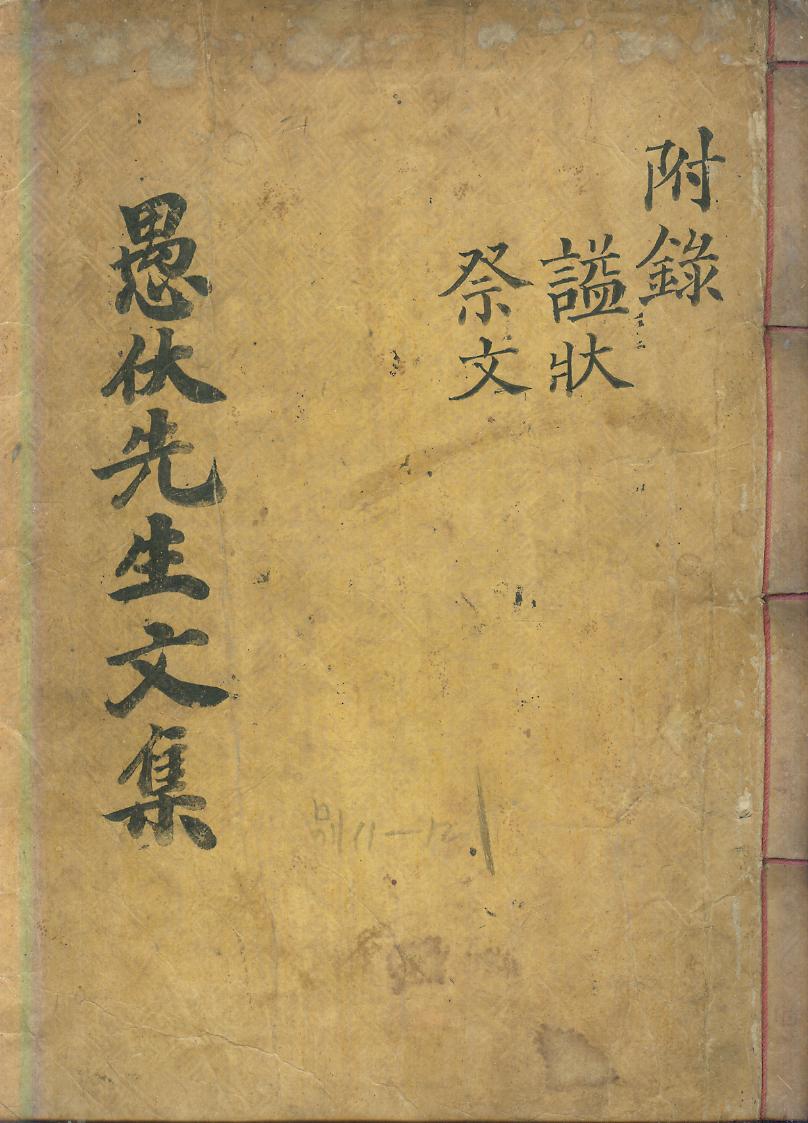 附錄
諡狀
祭文
愚伏先生文集
別11-12